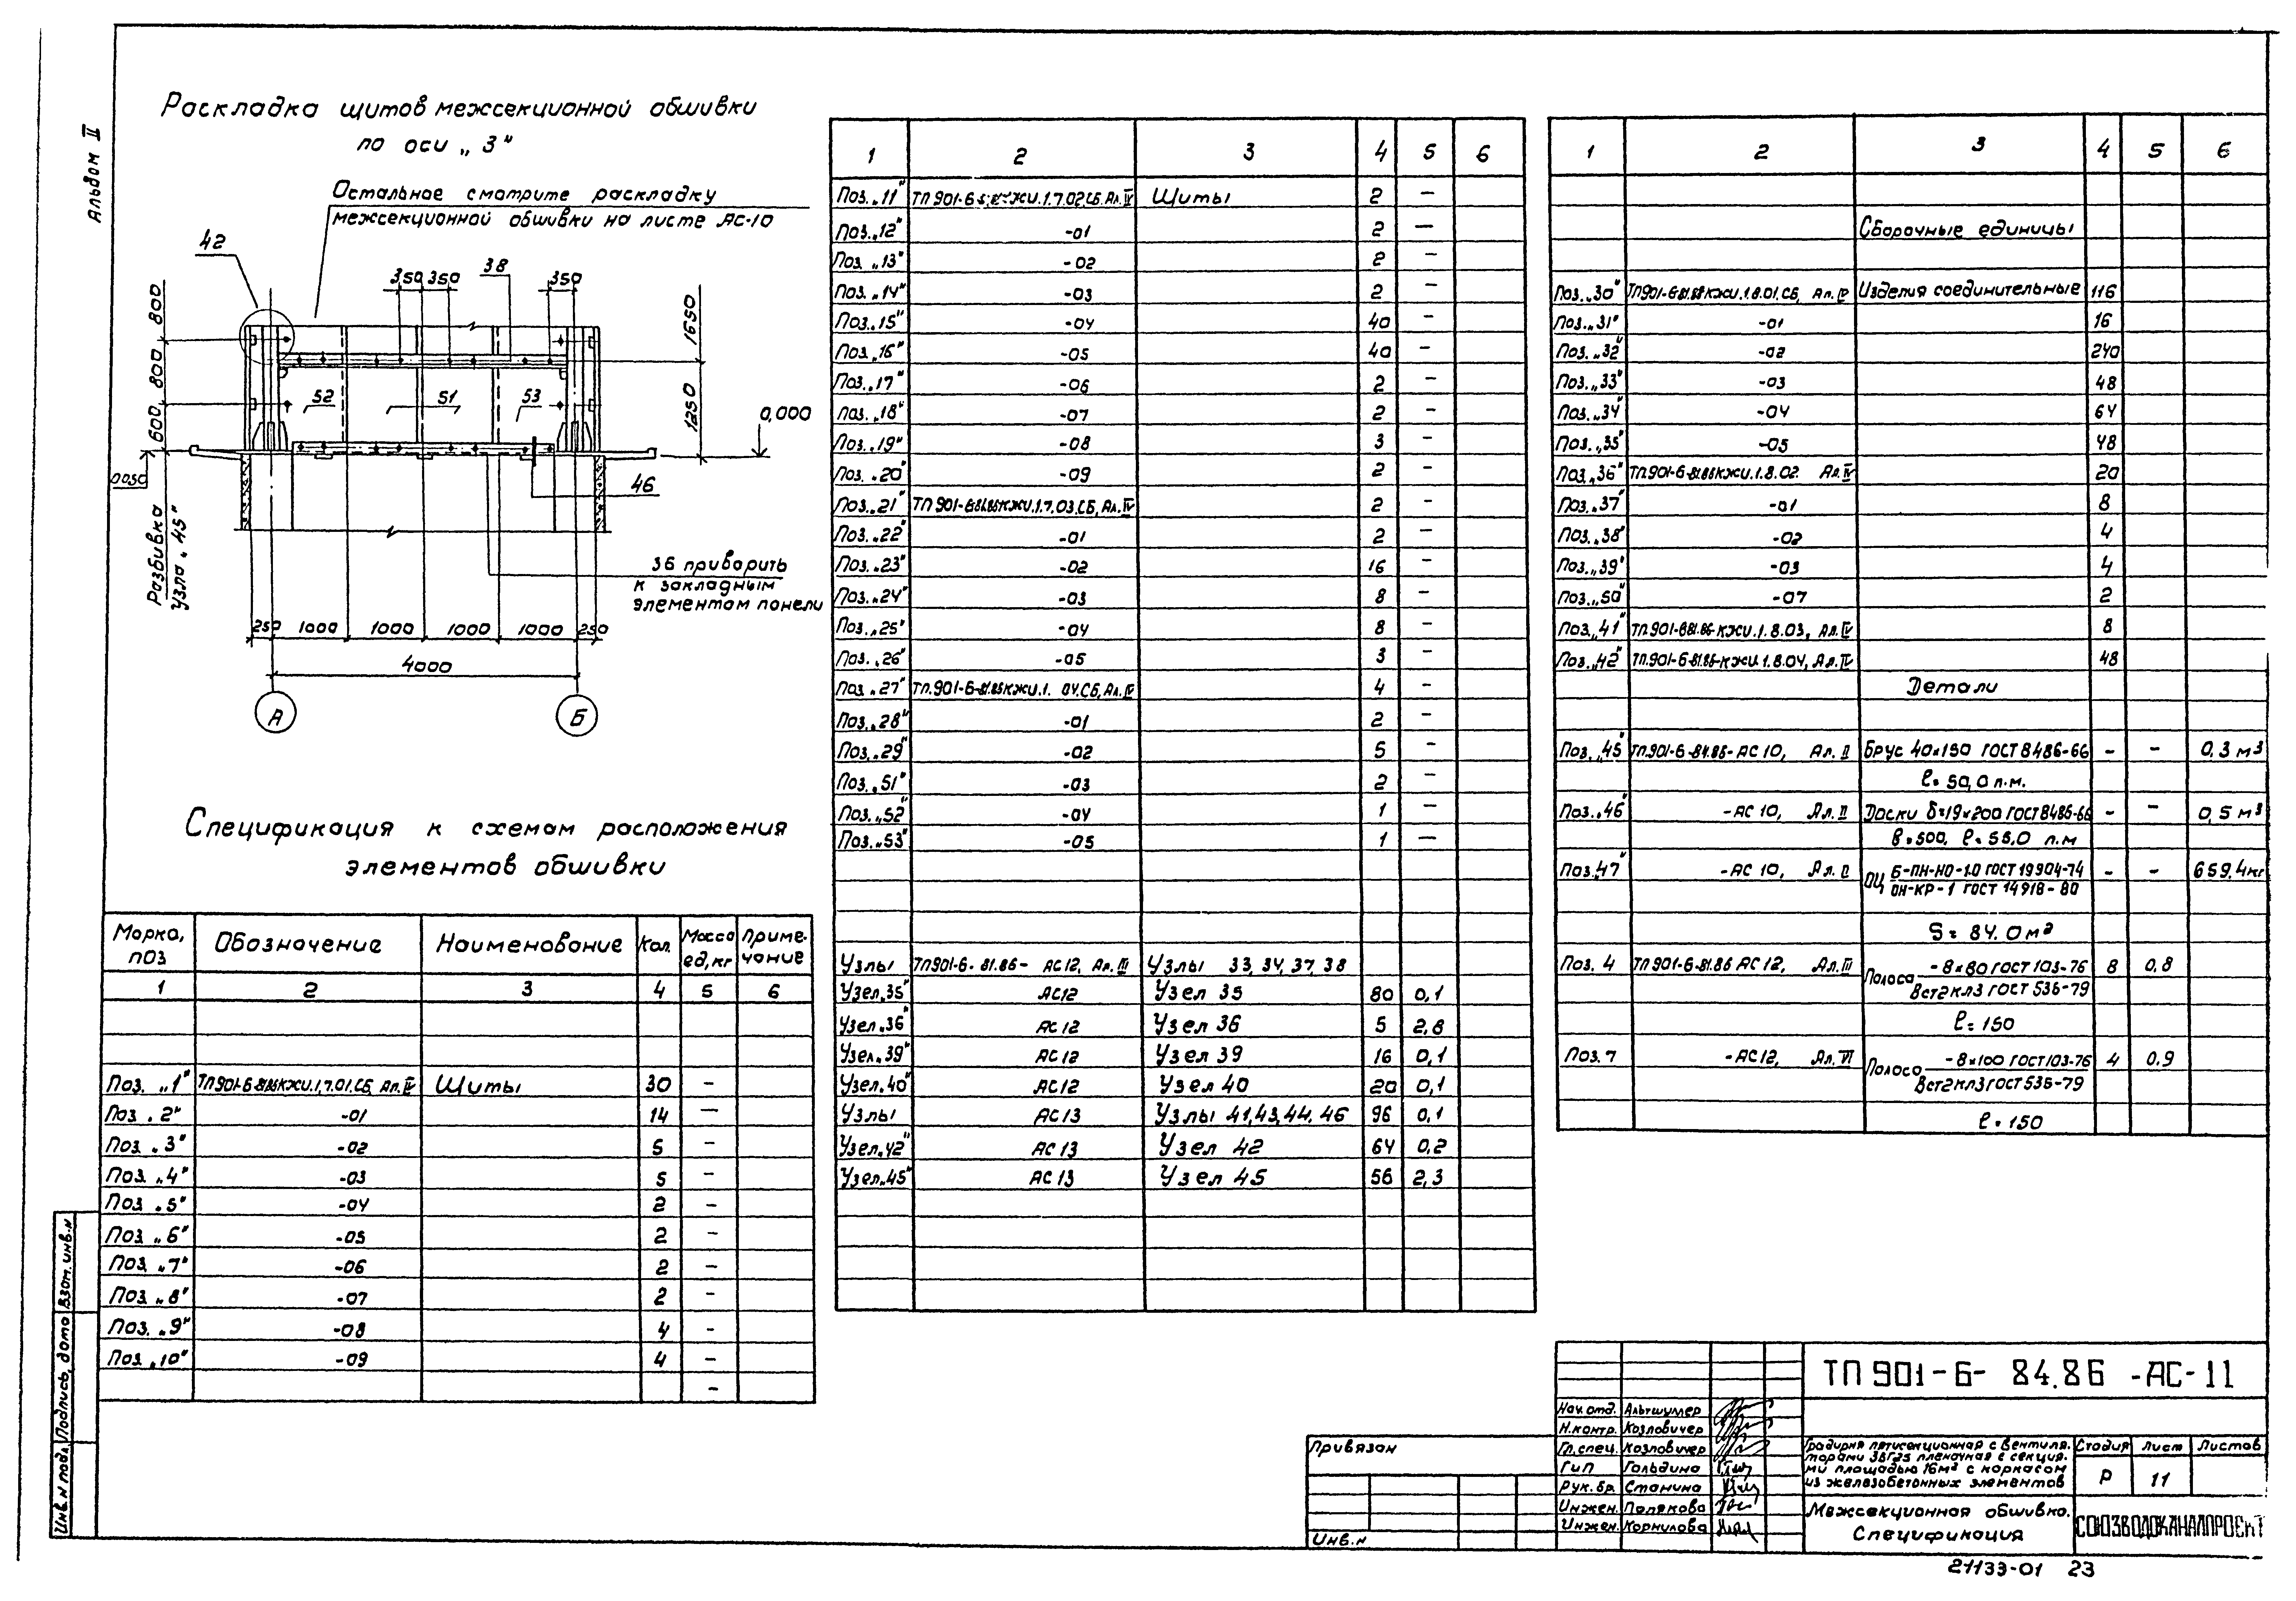 Альбом II
Раскладка щитов межсекционной обшивки
по оси „3"
Остальное смотрите раскладку
межсекционной обшивки на листе АС-10
42
350 350 38 350
800
800
600
1650
1250
0,000
52 51 53
46
Разбивка
узла „45"
36 приварить
к закладным
элементам панели
250 1000 1000 1000 1000 250
4000
А Б
Спецификация к схемам расположения
элементов обшивки
Марка, поз Обозначение Наименование Кол. Масса ед, кг Приме-чание
1 2 3 4 5 6
Поз. „1" Щиты 30 –
Поз. „2" -01 14 –
Поз. „3" -02 5 –
Поз. „4" -03 5 –
Поз. „5" -04 2 –
Поз. „6" -05 2 –
Поз. „7" -06 2 –
Поз. „8" -07 2 –
Поз. „9" -08 4 –
Поз. „10" -09 4 –
–
1 2 3 4 5 6
Поз. „11" Щиты 2 –
Поз. „12" -01 2 –
Поз. „13" -02 2 –
Поз. „14" -03 2 –
Поз. „15" -04 40 –
Поз. „16" -05 40 –
Поз. „17" -06 2 –
Поз. „18" -07 2 –
Поз. „19" -08 3 –
Поз. „20" -09 2 –
Поз. „21" 2 –
Поз. „22" -01 2 –
Поз. „23" -02 16 –
Поз. „24" -03 8 –
Поз. „25" -04 8 –
Поз. „26" -05 3 –
Поз. „27" 4 –
Поз. „28" -01 2 –
Поз. „29" -02 5 –
Поз. „51" -03 2 –
Поз. „52" -04 1 –
Поз. „53" -05 1 –
Узлы ТП901-6-81.86- АС12, Ал. III Узлы 33, 34, 37, 38
Узел „35" АС12 Узел 35 80 0,1
Узел „36" АС12 Узел 36 5 2,8
Узел „39" АС12 Узел 39 16 0,1
Узел „40" АС12 Узел 40 20 0,1
Узлы АС13 Узлы 41, 43, 44, 46 96 0,1
Узел „42" АС13 Узел 42 64 0,2
Узел „45" АС13 Узел 45 56 2,3
1 2 3 4 5 6
Сборочные единицы
Поз. „30" Изделия соединительные 116
Поз. „31" -01 16
Поз. „32" -02 240
Поз. „33" -03 48
Поз. „34" -04 64
Поз. „35" -05 48
Поз. „36" ТП.901-6-81.86 КЖИ.1.8.02. Ал. IV 20
Поз. „37" -01 8
Поз. „38" -02 4
Поз. „39" -03 4
Поз. „50" -07 2
Поз. „41" ТП.901-6-81.86-КЖИ.1.8.03, Ал. IV 8
Поз. „42" ТП.901-6-81.86-КЖИ.1.8.04, Ал. IV 48
Детали
Поз. „45" ТП.901-6-84.86-АС10, Ал. II Брус 40×150 ГОСТ 8486-66 – – 0,3 м³
ℓ= 50,0 п.м.
Поз. „46" -АС10, Ал. II Доски δ=19×200 ГОСТ 8486-66 – – 0,5 м³
в=500, ℓ= 55,0 п.м
Поз. „47" -АС10, Ал. II ОЦ Б-ПН-НО-1.0 ГОСТ 19904-74 – – 659,4 кг
ОН-КР-1 ГОСТ 14918-80
S= 84.0 м²
Поз. 4 ТП901-6-81.86 АС12, Ал. III Полоса -8×80 ГОСТ 103-76 8 0,8
Вст2кл3 ГОСТ 535-79
ℓ= 150
Поз. 7 -АС12, Ал. VI Полоса -8×100 ГОСТ 103-76 4 0,9
Вст2кл3 ГОСТ 535-79
ℓ= 150
ТП 901-6- 84.86 -АС-11
Нач. отд. Альтшуллер
Н.контр. Козловичер
Гл.спец. Козловичер
ГИП Гольдина
Рук. бр. Станина
Инжен. Полякова
Инжен. Корнилова
Градирня пятисекционная с вентиля-
торами 3ВГ25 пленочная с секция-
ми площадью 16м² с каркасом
из железобетонных элементов
Стадия Лист Листов
Р 11
Межсекционная обшивка.
Спецификация
СОЮЗВОДОКАНАЛПРОЕКТ
Привязан
Инв.н
Инв. N подл. Подпись, дата Взам. инв. N
21133-01 23